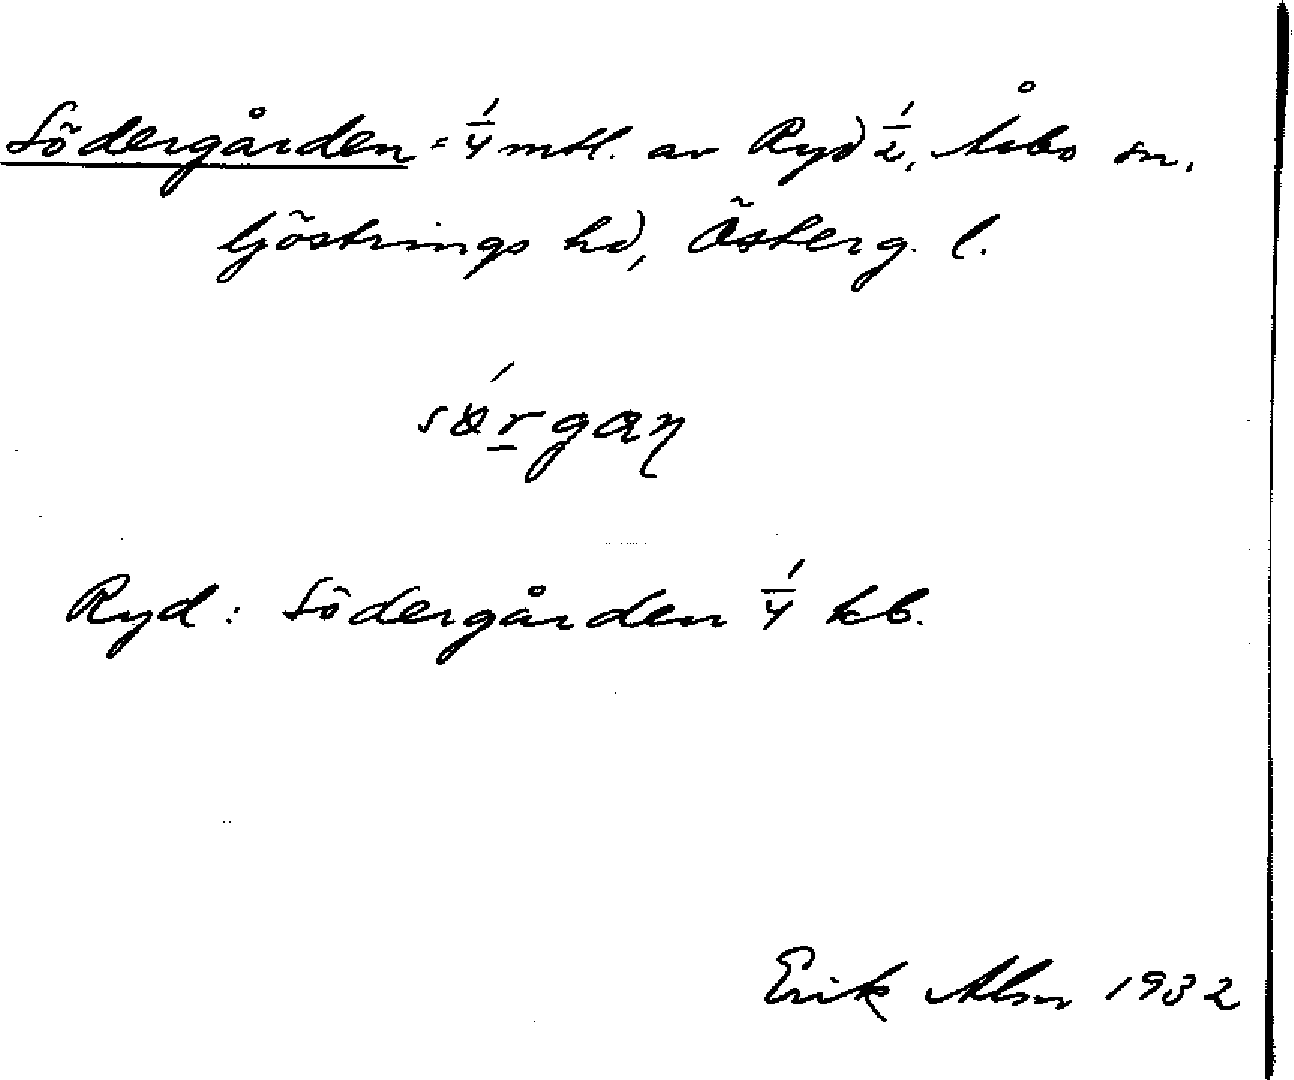 Södergården = 1/4 mtl. av Ryd 1/2, Åsbo sn.
Göstrings hd, Österg. l.
sø´rgaɳ
Ryd: Södergården 1/4 kb.
Erik Alm 1932